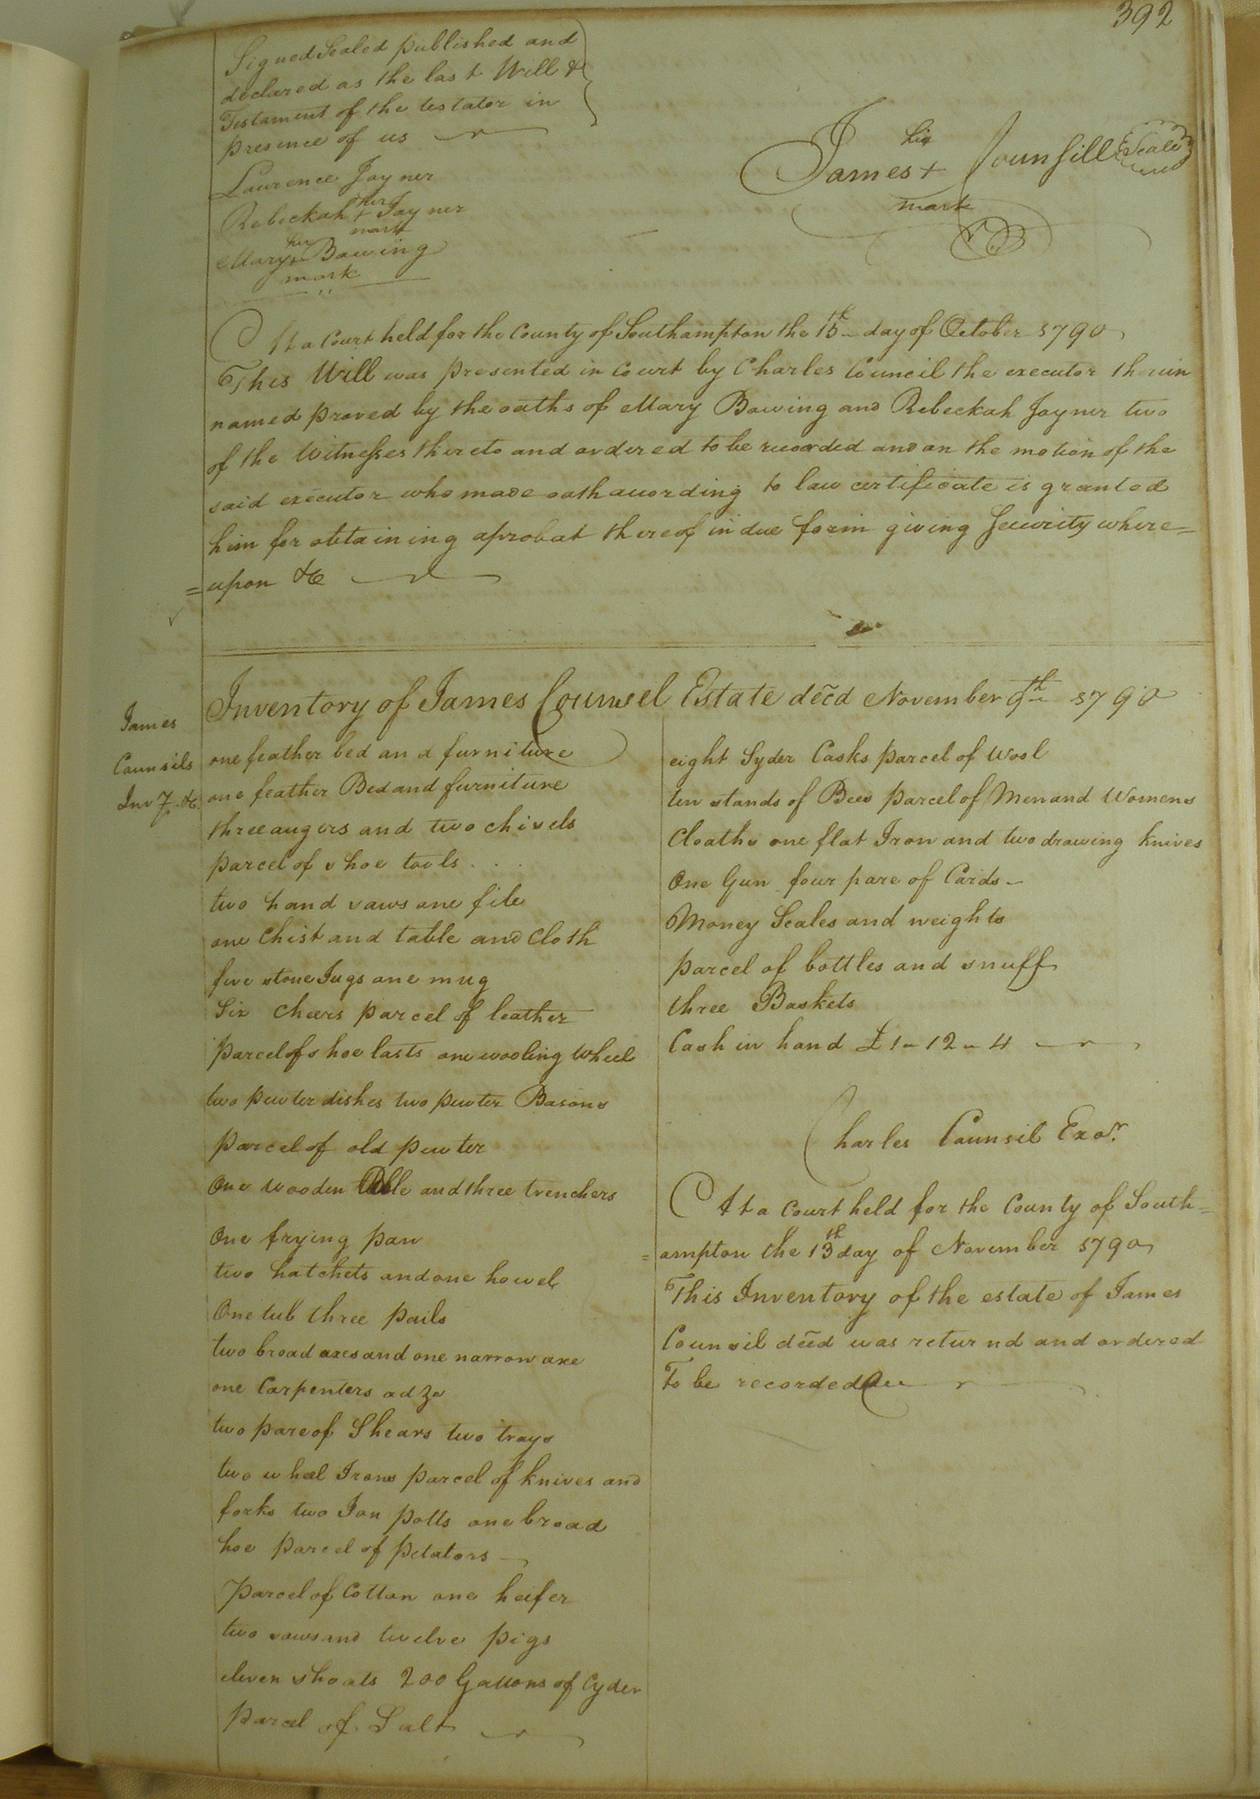 392
Signed Sealed published and
declared as the last Will &
Testament of the testator in
presence of us
Laurence Joyner
Rebeckah her + Joyner
mark
Mary her + Bowing
mark
James his + Counsill Seale
mark
At a Court held for the County of Southampton the 15th day of October 1790
This Will was presented in Court by Charles Council the executor therein
named proved by the oaths of Mary Bowing and Rebeckah Joyner two
of the Witnesses thereto and ordered to be recorded and on the motion of the
said executor who made oath according to law certificate is granted
him for obtaining aprobat thereof in due form giving Security where=
=upon &c
Inventory of James Counsel Estate decd November 9th 1790
James
Counsils
Inv Y &c
one feather bed and furniture
one feather Bed and furniture
three augers and two chisels
parcel of shoe tools
two hand saws one file
one Chist and table and Cloth
five stone Jugs one mug
Six cheers parcel of leather
parcel of shoe lasts one wooling Wheel
two pewter dishes two pewter Basons
parcel of old pewter
One wooden and three trenchers
One frying pan
two hatchets and one howel
One tub three pails
two broad axes and one narrow axe
one Carpenters adze
two pare of Shears two trays
two wheel Irons parcel of knives and
forks two Ion potts one broad
hoe parcel of petators
Parcel of Cotton one heifer
two sows and twelve pigs
eleven shoats 200 Gallons of Cyder
parcel of Salt
eight Syder Casks parcel of Wool
ten stands of Bees parcel of Men and Womens
Cloaths one flat Iron and two drawing knives
One Gun four pare of Cards
Money Scales and weights
parcel of bottles and snuff
three Baskets
Cash in hand £1-12-4
Charles Counsil Exor.
At a Court held for the County of South=
=ampton the 13th day of November 1790
This Inventory of the estate of James
Counsil decd was returnd and ordered
To be recorded